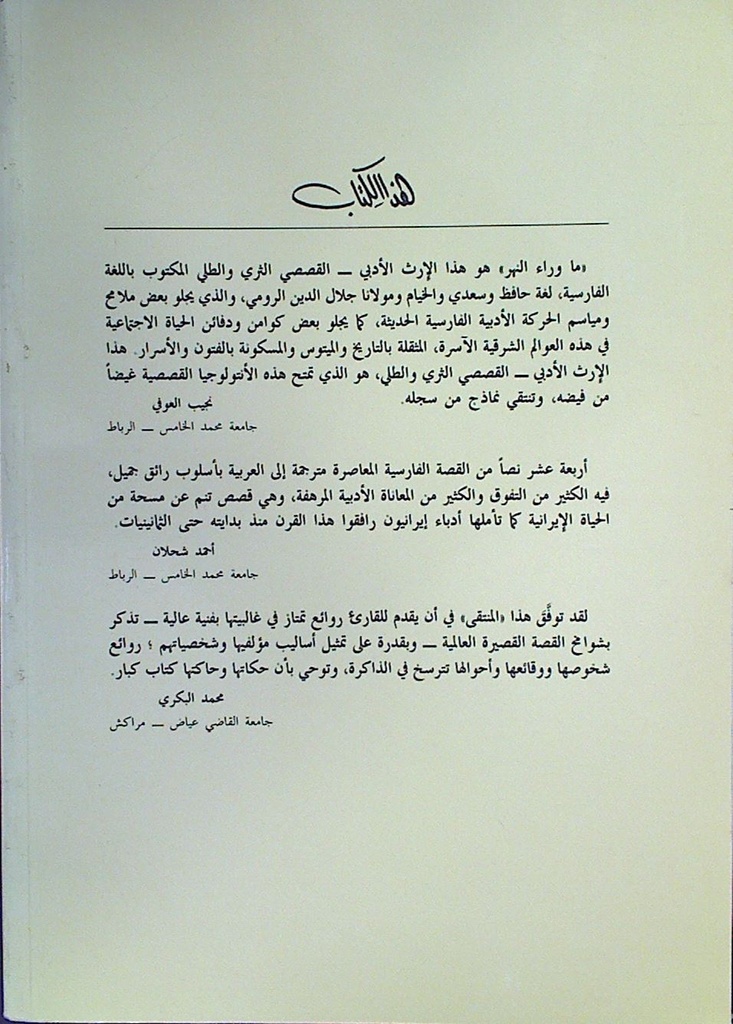 هذا الكتاب
«ما وراء النهر» هو هذا الإرث الأدبي — القصصي الثري والطلي المكتوب باللغة
الفارسية، لغة حافظ وسعدي والخيام ومولانا جلال الدين الرومي، والذي يجلو بعض ملامح
ومياسم الحركة الأدبية الفارسية الحديثة، كما يجلو بعض كوامن ودفائن الحياة الاجتماعية
في هذه العوالم الشرقية الآسرة، المثقلة بالتاريخ والميتوس والمسكونة بالفتون والأسرار. هذا
الإرث الأدبي — القصصي الثري والطلي، هو الذي تمتح هذه الأنتولوجيا القصصية غيضاً
من فيضه، وتنتقي نماذج من سجله.
نجيب العوفي
جامعة محمد الخامس — الرباط
أربعة عشر نصاً من القصة الفارسية المعاصرة مترجمة إلى العربية بأسلوب رائق جميل،
فيه الكثير من التفوق والكثير من المعاناة الأدبية المرهفة، وهي قصص تنم عن مسحة من
الحياة الإيرانية كما تأملها أدباء إيرانيون رافقوا هذا القرن منذ بدايته حتى الثمانينيات.
أحمد شحلان
جامعة محمد الخامس — الرباط
لقد توفَّقَ هذا «المنتقى» في أن يقدم للقارئ روائع تمتاز في غالبيتها بفنية عالية — تذكر
بشوامخ القصة القصيرة العالمية — وبقدرة على تمثيل أساليب مؤلفيها وشخصياتهم ؛ روائع
شخوصها ووقائعها وأحوالها تترسخ في الذاكرة، وتوحي بأن حكاتها وحاكتها كتاب كبار.
محمد البكري
جامعة القاضي عياض — مراكش